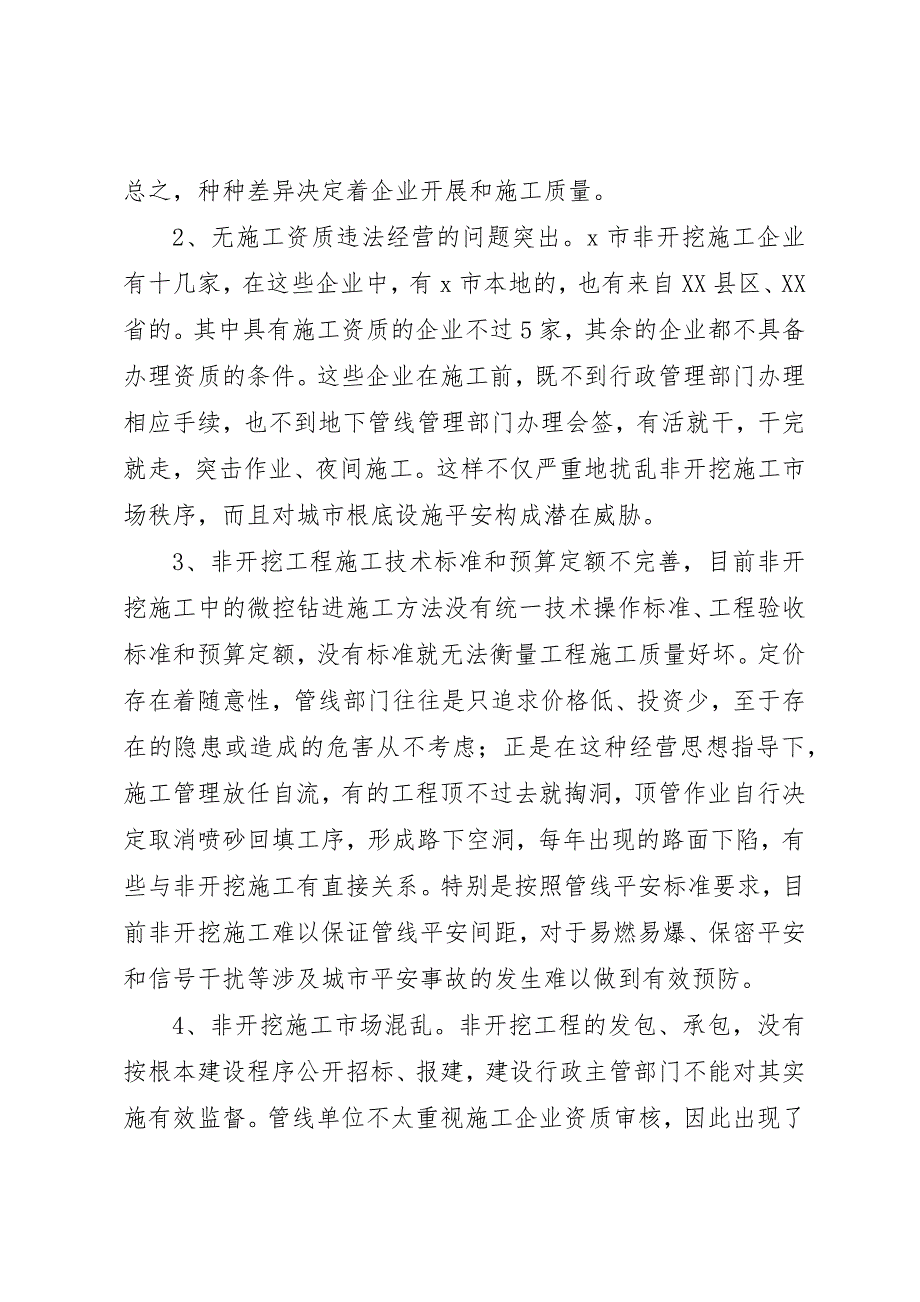 总之，种种差异决定着企业开展和施工质量。
2、无施工资质违法经营的问题突出。x 市非开挖施工企业
有十几家，在这些企业中，有 x 市本地的，也有来自 XX 县区、XX
省的。其中具有施工资质的企业不过 5 家，其余的企业都不具备
办理资质的条件。这些企业在施工前，既不到行政管理部门办理
相应手续，也不到地下管线管理部门办理会签，有活就干，干完
就走，突击作业、夜间施工。这样不仅严重地扰乱非开挖施工市
场秩序，而且对城市根底设施平安构成潜在威胁。
3、非开挖工程施工技术标准和预算定额不完善，目前非开
挖施工中的微控钻进施工方法没有统一技术操作标准、工程验收
标准和预算定额，没有标准就无法衡量工程施工质量好坏。定价
存在着随意性，管线部门往往是只追求价格低、投资少，至于存
在的隐患或造成的危害从不考虑；正是在这种经营思想指导下，
施工管理放任自流，有的工程顶不过去就掏洞，顶管作业自行决
定取消喷砂回填工序，形成路下空洞，每年出现的路面下陷，有
些与非开挖施工有直接关系。特别是按照管线平安标准要求，目
前非开挖施工难以保证管线平安间距，对于易燃易爆、保密平安
和信号干扰等涉及城市平安事故的发生难以做到有效预防。
4、非开挖施工市场混乱。非开挖工程的发包、承包，没有
按根本建设程序公开招标、报建，建设行政主管部门不能对其实
施有效监督。管线单位不太重视施工企业资质审核，因此出现了